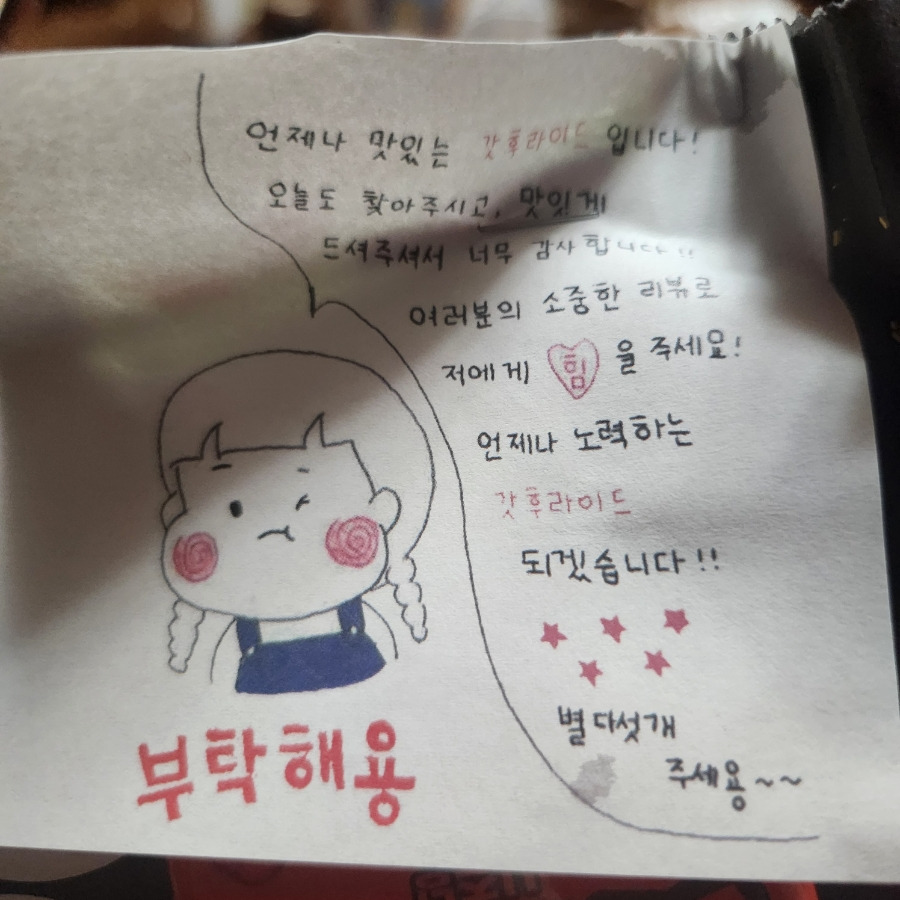 언제나 맛있는 갓후라이드 입니다!
오늘도 찾아주시고, 맛있게
드셔주셔서 너무 감사합니다!!
여러분의 소중한 리뷰로
저에게 힘을 주세요!
언제나 노력하는
갓후라이드
되겠습니다!!
별 다섯개
주세용~~
부탁해용